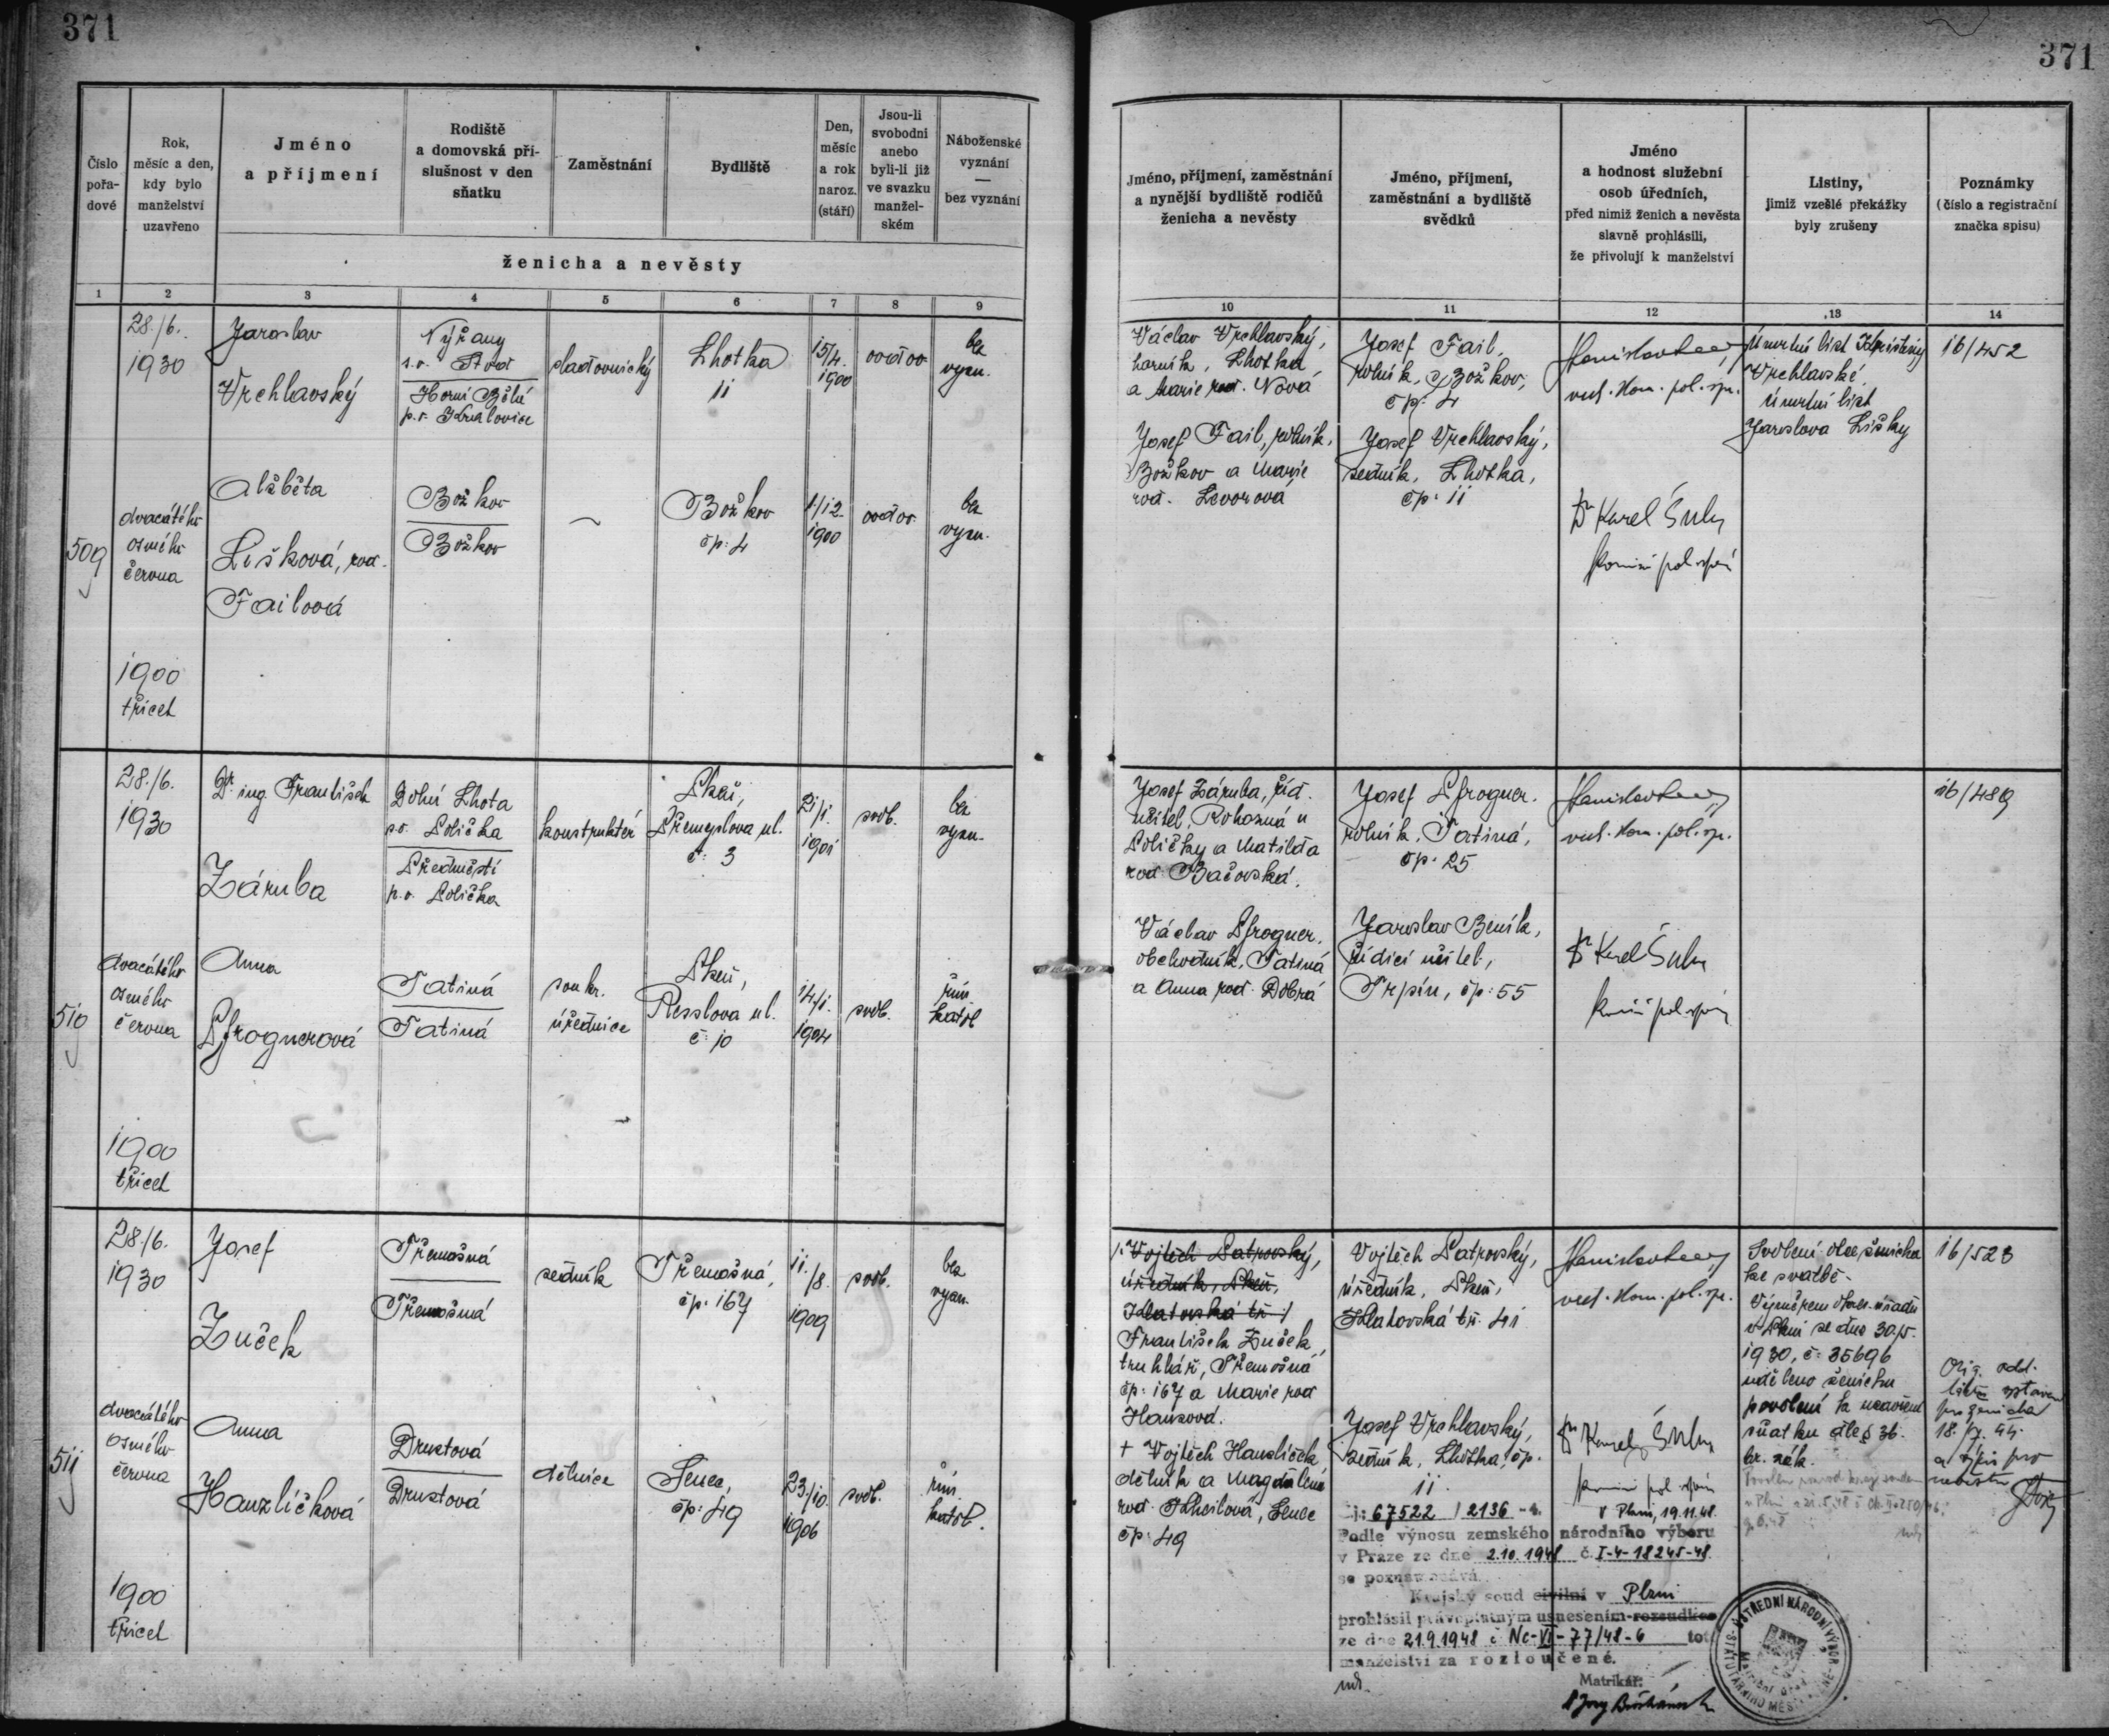 371
371
Číslo
pořa-
dové
Rok,
měsíc a den,
kdy bylo
manželství
uzavřeno
Jméno
a příjmení
Rodiště
a domovská pří-
slušnost v den
sňatku
Zaměstnání
Bydliště
Den,
měsíc
a rok
naroz.
(stáří)
Jsou-li
svobodni
anebo
byli-li již
ve svazku
manžel-
ském
Náboženské
vyznání
—
bez vyznání
ženicha a nevěsty
Jméno, příjmení, zaměstnání
a nynější bydliště rodičů
ženicha a nevěsty
Jméno, příjmení,
zaměstnání a bydliště
svědků
Jméno
a hodnost služební
osob úředních,
před nimiž ženich a nevěsta
slavně prohlásili,
že přivolují k manželství
Listiny,
jimiž vzešlé překážky
byly zrušeny
Poznámky
(číslo a registrační
značka spisu)
1 2 3 4 5 6 7 8 9
10 11 12 13 14
509
28./6.
1930
dvacátého
osmého
června
1900
třicet
Jaroslav
Vrchlavský
Nýřany
s.o. Stod
Horní Bělá
p.o. Kralovice
Lhotka
11
15/4.
1900
vdov
bez
vyzn.
Alžběta
Lišková, roz.
Failová
Božkov
Božkov
Božkov
čp: 4
1/12
1900
vdov.
bez
vyzn.
Václav Vrchlavský,
horník, Lhotka
a Marie roz. Nová
Josef Fail, rolník,
Božkov a Marie
roz. Levorová
Josef Fail,
rolník, Božkov,
čp: 4
Josef Vrchlavský,
zedník, Lhotka,
čp: 11
vrch. kom. pol. sp.
Dr Karel Šulc
Úmrtní list Kristiny
Vrchlavské
Úmrtní list
Jaroslava Lišky
16/452
510
28./6.
1930
dvacátého
osmého
června
1900
třicet
Dr. ing. František
Záruba
Dolní Lhota
p.o. Polička
Předměstí
p.o. Polička
konstruktér
Plzeň,
Přemyslova ul.
č: 3
21/1.
1901
svob.
bez
vyzn.
Anna
Pfrognerová
Tatiná
Tatiná
soukr.
úřednice
Plzeň,
Resslova ul.
č: 10
14/1.
1904
svob.
řím.
katol
Josef Záruba, říd.
učitel, Rohozná u
Poličky a Matilda
roz. Bačovská.
Václav Pfrogner,
obchodník, Tatiná
a Anna roz. Dobrá
Josef Pfrogner.
rolník, Tatiná,
čp: 25
Jaroslav Beník,
řídící učitel,
Trpín, čp: 55
vrch. kom. pol. sp.
Dr Karel Šulc
16/489
511
28./6.
1930
dvacátého
osmého
června
1900
třicet
Josef
Zuček
Třemošná
Třemošná
zedník
Třemošná,
čp: 167
11./8.
1909
svob.
bez
vyzn.
Anna
Hanzlíčková
Druztová
Druztová
dělnice
Senec,
čp: 49
23./10.
1906
svob.
řím.
katol.
Vojtěch Patrovský,
úředník, Plzeň,
Klatovská tř.
František Zuček,
truhlář, Třemošná
čp: 167 a Marie roz
Hanzová.
+ Vojtěch Hanzlíček
dělník a Magdalena
roz. Senec
čp: 49
Vojtěch Patrovský,
úředník, Plzeň,
Klatovská tř. 41
Josef Vrchlavský,
zedník, Lhotka, čp.
11.
vrch. kom. pol. sp.
Dr Karel Šulc
Svolení otce ženicha
ke svatbě.
Výměrem okres. úřadu
v Plzni ze dne 30./5.
1930, č: 35696
uděleno ženichu
povolení k uzavření
sňatku dle § 36.
16/523
Orig. odd.
pro ženicha
a výpis pro
nevěstu
čj: 67522 / 2136 -4. V Plzni, 19.11.48.
Podle výnosu zemského národního výboru
v Praze ze dne 2.10.1948 č. I-4-18245-48.
se poznamenává
Krajský soud civilní v Plzni
prohlásil právoplatným usnesením-rozsudkem
ze dne 21.9.1948 č. Nc-VI-77/48-6 toto
manželství za rozloučené.
Matrikář:
ÚSTŘEDNÍ NÁRODNÍ VÝBOR
STATUTÁRNÍHO MĚSTA PLZNĚ
Matriční úřad